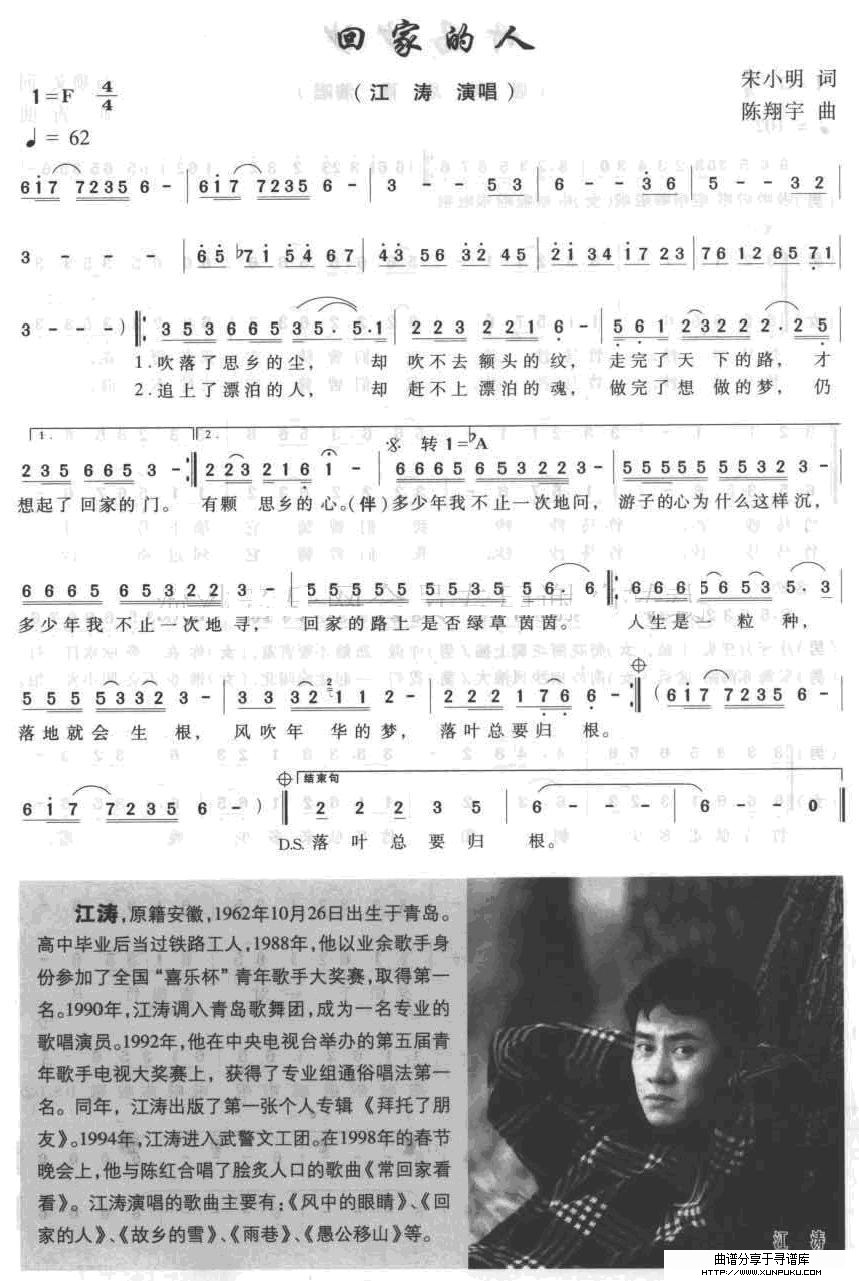 回家的人
1=F 4/4
(江 涛 演唱)
宋小明 词
陈翔宇 曲
♩= 62
6i7 7235 6 - | 6i7 7235 6 - | 3 - - 53 | 6 - - 36 | 5 - - 32 |
3 - - - | 65 ♭7i 54 67 | 43 56 32 45 | 2i 34 i7 23 | 76 12 65 71 |
3 - - -) ‖: 353665 35.5.1 | 223 221 6 - | 561 23222.25 |
1.吹落了思乡的尘, 却 吹不去 额头的纹, 走完了天 下的路, 才
2.追上了漂泊的人, 却 赶不上 漂泊的魂, 做完了想 做的梦, 仍
1. 2. 𝄋 转 1=♭A
235 665 3 - :‖ 223 2216 1 - | 6665 653223 - | 555555 55323 - |
想起了 回家的 门。 有颗 思乡的 心。(伴)多少年我不止一次地问, 游子的心为什么这样沉,
6665 65322 3 - | 555555 5535 56. 6 ‖: 666 5653 5. 3 |
多少年我 不止一次地 寻, 回家的路上是否绿草茵茵。 人生是一 粒 种,
555 5332 3 - | 33 332211 2 - | 2221766 - :‖ (6i7 7235 6 - |
落地就会 生 根, 风吹年 华的梦, 落叶总要归 根。
结束句
6i7 7235 6 - ) ‖ 2 2 2 3 5 | 6 - - - | 6 - - 0 ‖
D.S. 落 叶 总 要 归 根。
江涛,原籍安徽,1962年10月26日出生于青岛。
高中毕业后当过铁路工人,1988年,他以业余歌手身
份参加了全国“喜乐杯”青年歌手大奖赛,取得第一
名。1990年,江涛调入青岛歌舞团,成为一名专业的
歌唱演员。1992年,他在中央电视台举办的第五届青
年歌手电视大奖赛上, 获得了专业组通俗唱法第一
名。同年, 江涛出版了第一张个人专辑 《拜托了朋
友》。1994年,江涛进入武警文工团。在1998年的春节
晚会上,他与陈红合唱了脍炙人口的歌曲《常回家看
看》。 江涛演唱的歌曲主要有:《风中的眼睛》、《回
家的人》、《故乡的雪》、《雨巷》、《愚公移山》等。
江 涛
曲谱分享于寻谱库
HTTP://WWW.XUNPUKU.COM